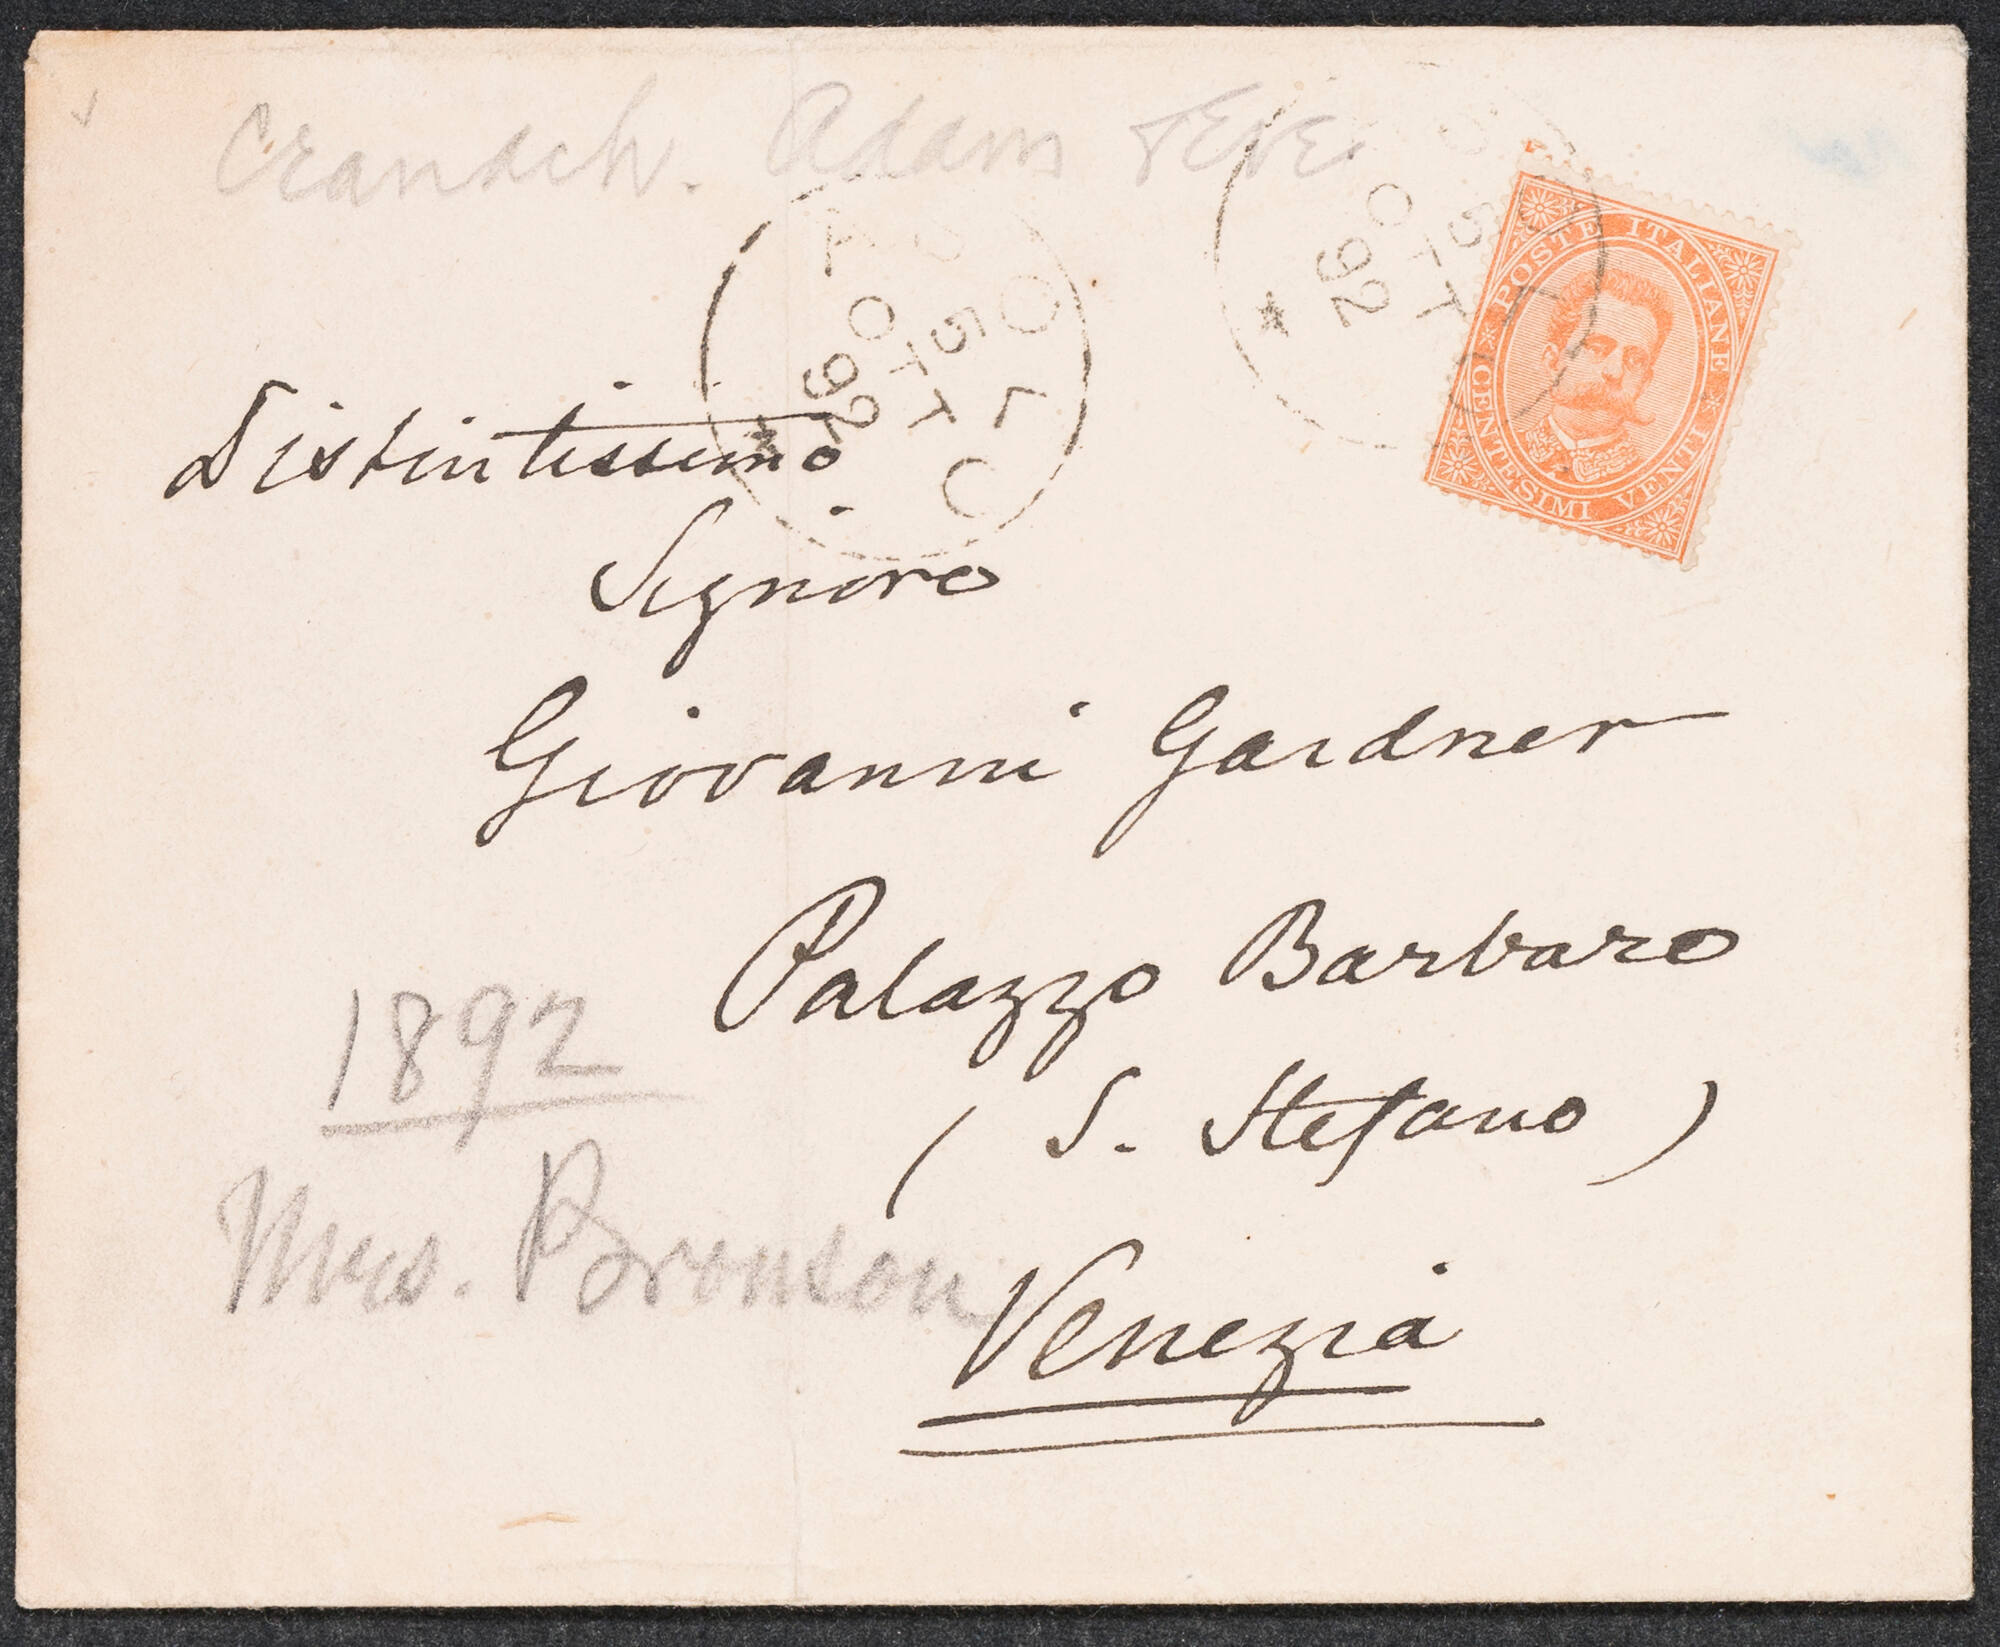 Cranach. Adam & Eve
ASOLO
5
OTT
92
ASOLO
5
OTT
92
POSTE ITALIANE
CENTESIMI VENTI
Distintissimo
Signore
Giovanni Gardner
Palazzo Barbaro
( S. Stefano )
Venezia
1892
Mrs. Bronson